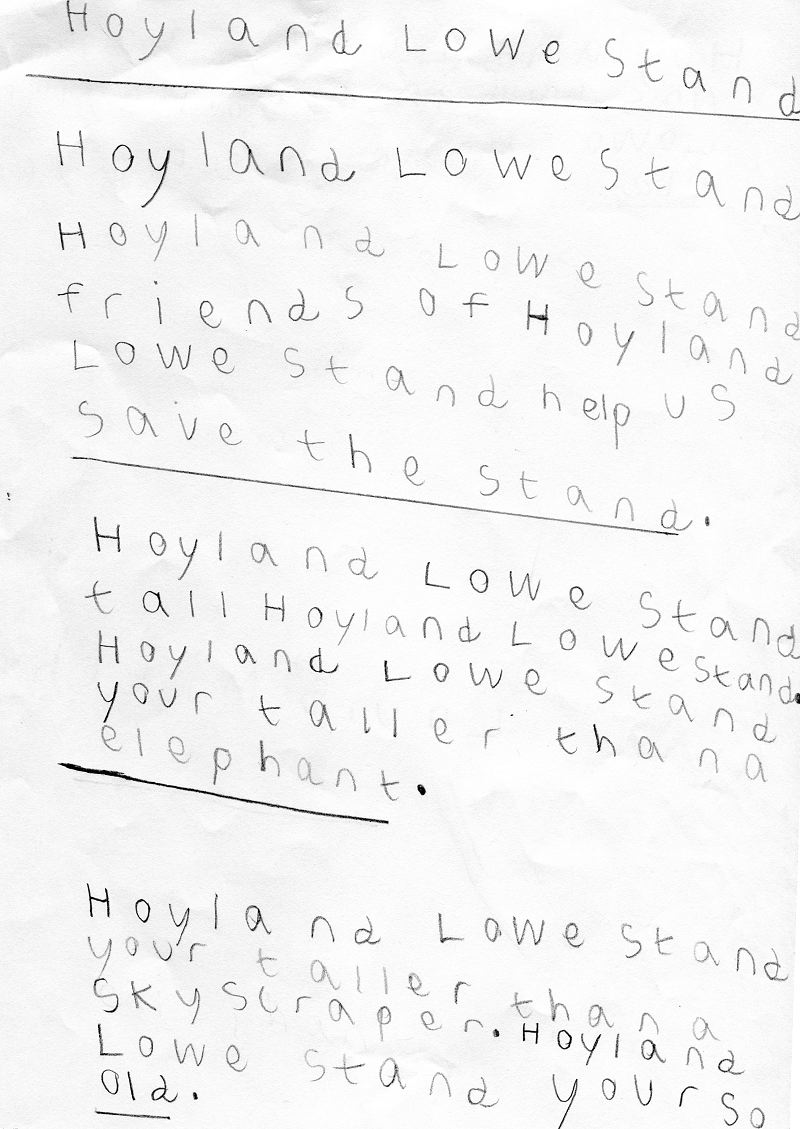 Hoyland Lowe Stand
Hoyland Lowe Stand
Hoyland Lowe Stand
friends of Hoyland
Lowe Stand help us
save the stand.
Hoyland Lowe Stand
tall Hoyland Lowe Stand.
Hoyland Lowe Stand
your taller than a
elephant.
Hoyland Lowe Stand
your taller than a
skyscraper. Hoyland
Lowe Stand your so
old.